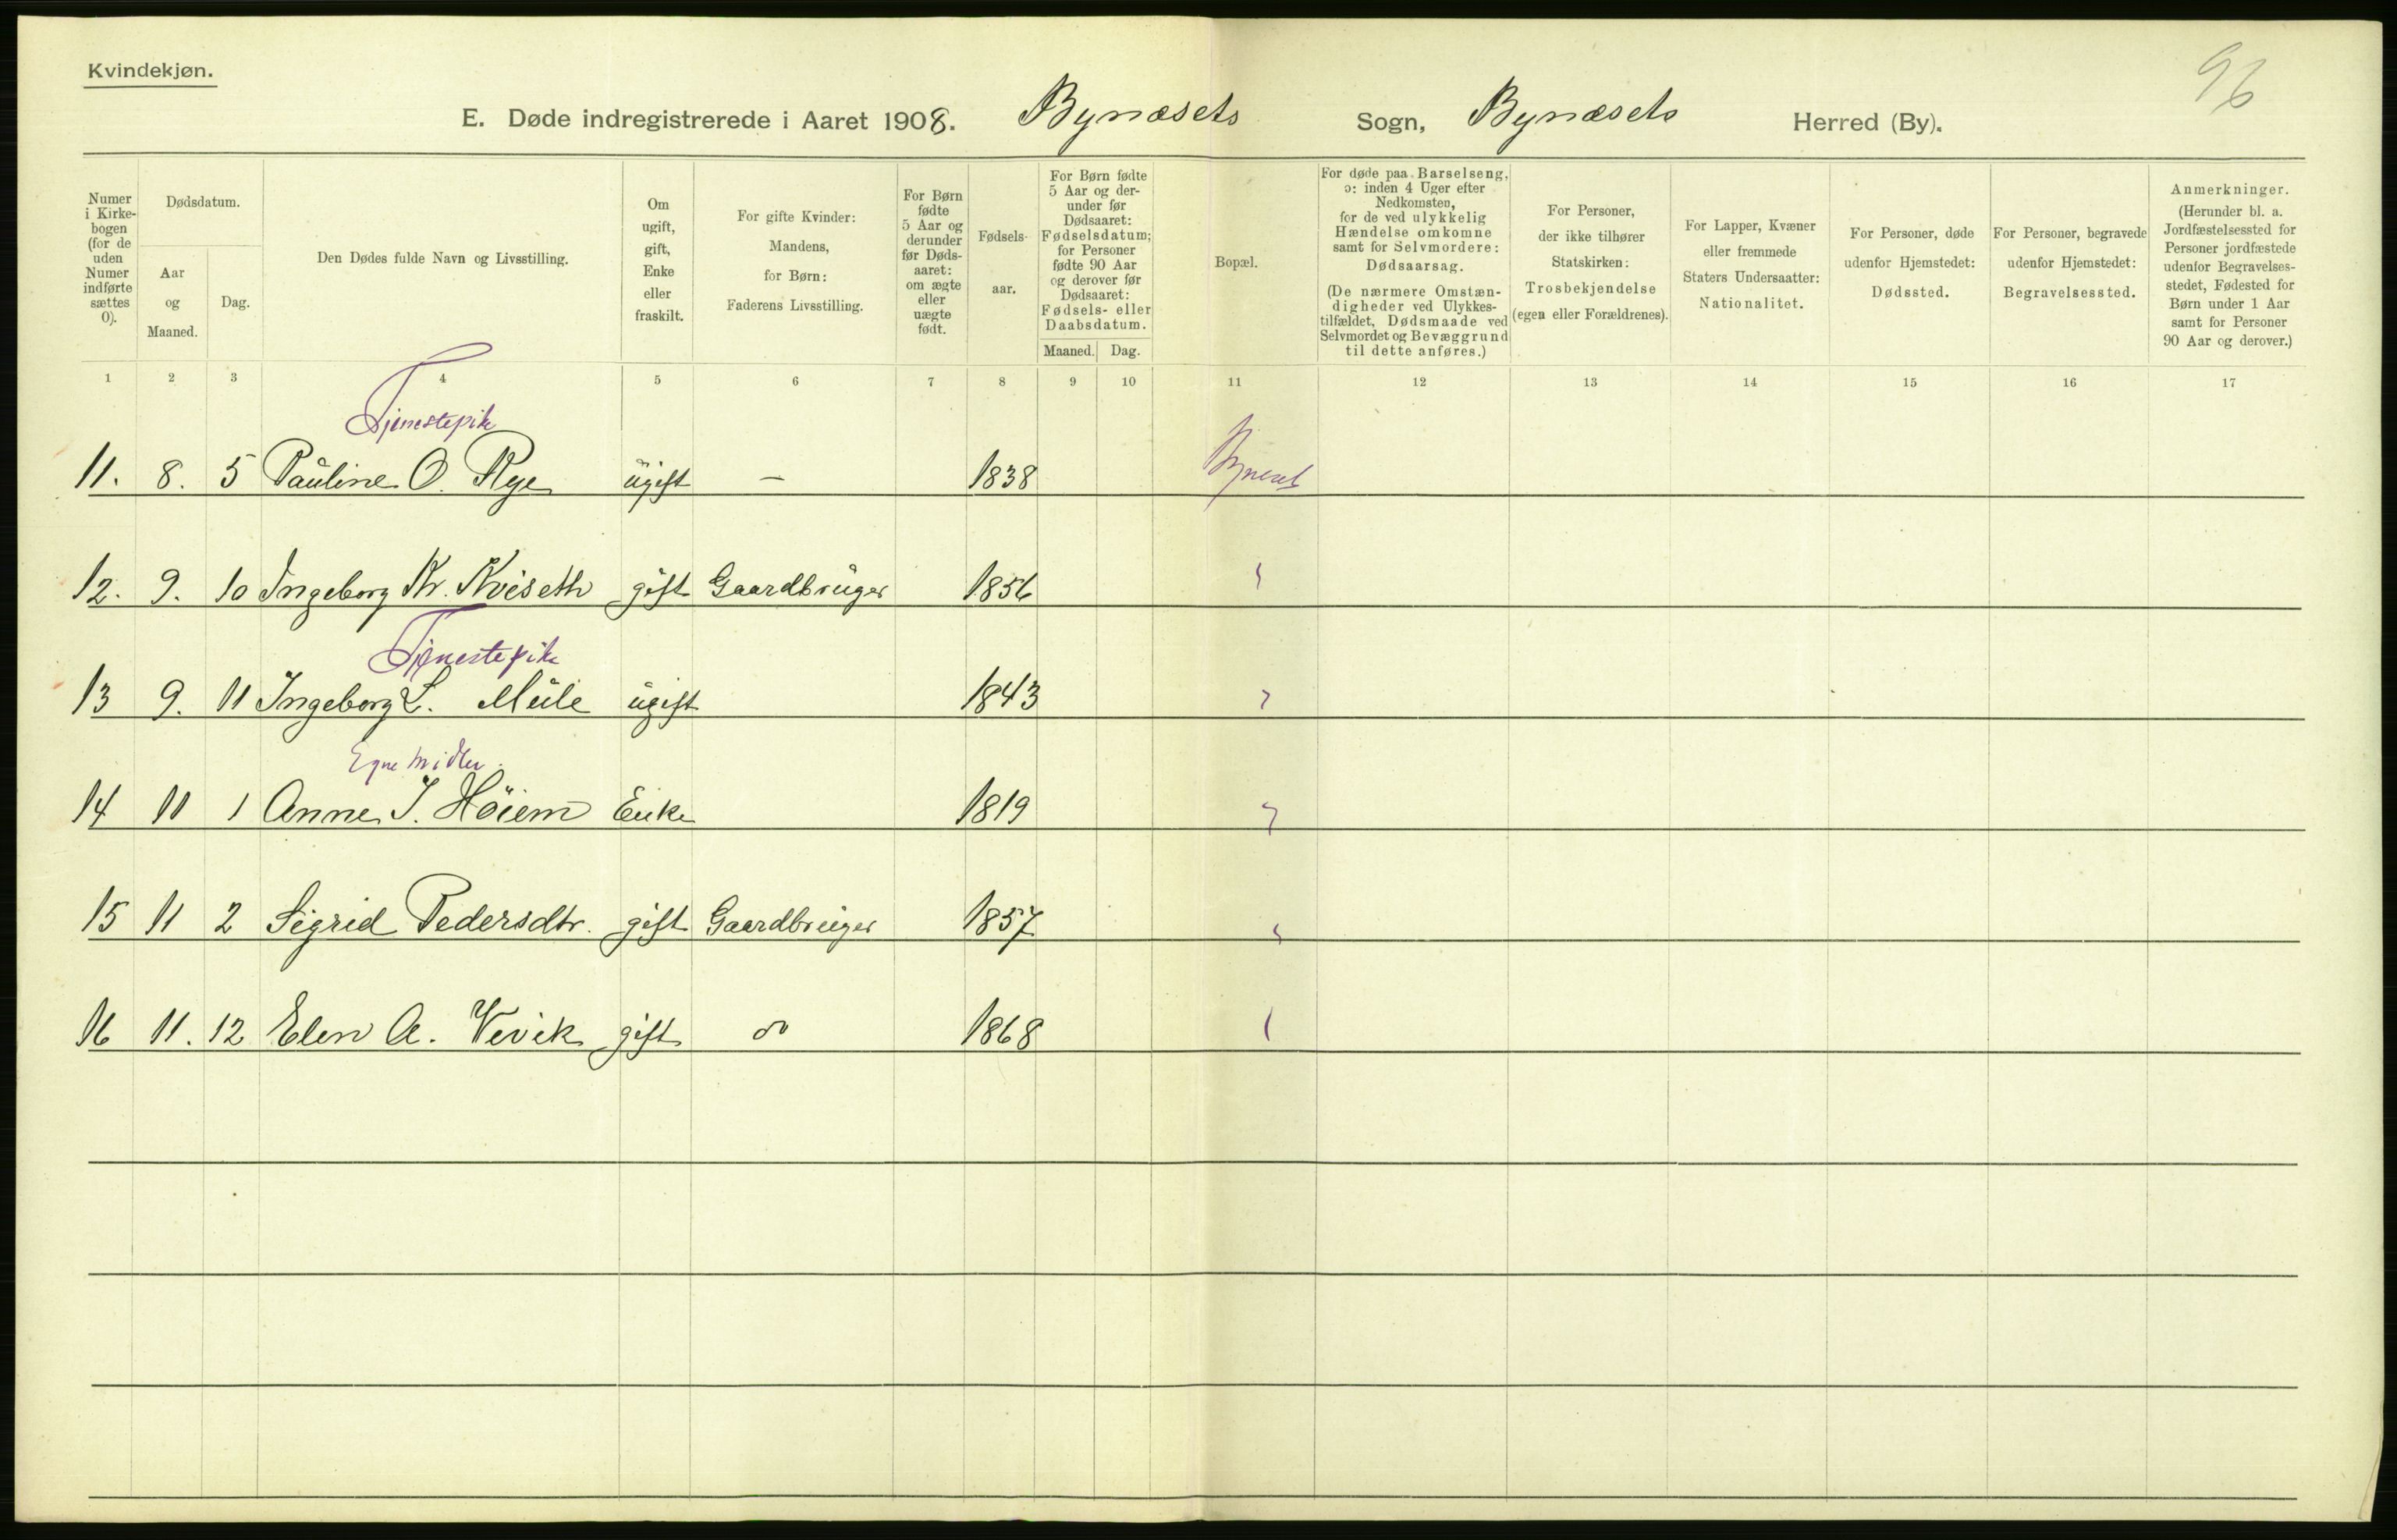 Kvindekjøn.
96
E. Døde indregistrerede i Aaret 1908. Bynæsets Sogn, Bynæsets Herred (By).
Numer i Kirkebogen (for de uden Numer indførte sættes 0).
Dødsdatum.
Aar og Maaned.
Dag.
Den Dødes fulde Navn og Livsstilling.
Om ugift, gift, Enke eller fraskilt.
For gifte Kvinder: Mandens, for Børn: Faderens Livsstilling.
For Børn fødte 5 Aar og derunder før Dødsaaret: om ægte eller uægte født.
Fødselsaar.
For Børn fødte 5 Aar og derunder før Dødsaaret: Fødselsdatum; for Personer fødte 90 Aar og derover før Dødsaaret: Fødsels- eller Daabsdatum.
Maaned. Dag.
Bopæl.
For døde paa Barselseng, ɔ: inden 4 Uger efter Nedkomsten, for de ved ulykkelig Hændelse omkomne samt for Selvmordere: Dødsaarsag. (De nærmere Omstændigheder ved Ulykkestilfældet, Dødsmaade ved Selvmordet og Bevæggrund til dette anføres.)
For Personer, der ikke tilhører Statskirken: Trosbekjendelse (egen eller Forældrenes).
For Lapper, Kvæner eller fremmede Staters Undersaatter: Nationalitet.
For Personer, døde udenfor Hjemstedet: Dødssted.
For Personer, begravede udenfor Hjemstedet: Begravelsessted.
Anmerkninger. (Herunder bl. a. Jordfæstelsessted for Personer jordfæstede udenfor Begravelsesstedet, Fødested for Børn under 1 Aar samt for Personer 90 Aar og derover.)
1 2 3 4 5 6 7 8 9 10 11 12 13 14 15 16 17
Tjenestepike
11. 8. 5 Pauline O. Rye ugift — 1838 Byneset
12. 9. 10 Ingeborg Kr. Kviseth gift Gaardbruger 1856
Tjenestepike
13 9. 11 Ingeborg L. Mule ugift 1843
Egne midler.
14 11 1 Anne J. Höiem Enke 1819
15 11 2 Sigrid Pedersdtr. gift Gaardbruger 1857
16 11. 12 Elen A. Vevik gift do 1868